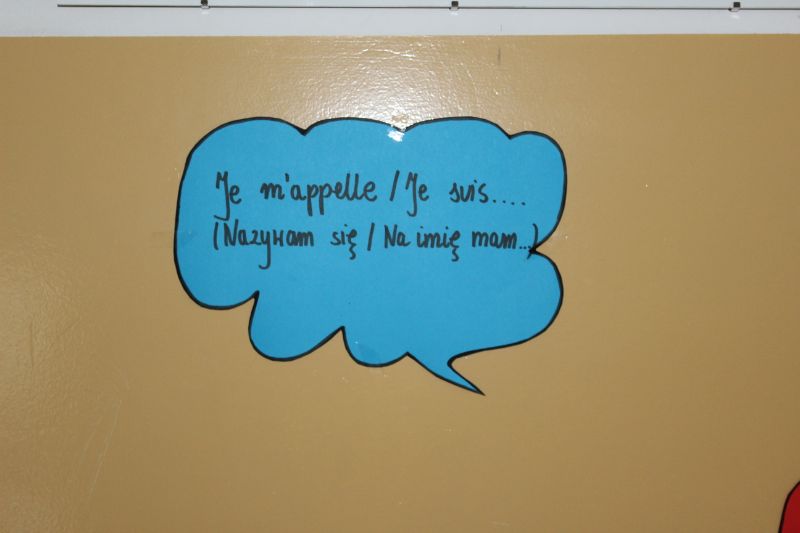 Je m'appelle / Je suis....
(Nazywam się / Na imię mam...)